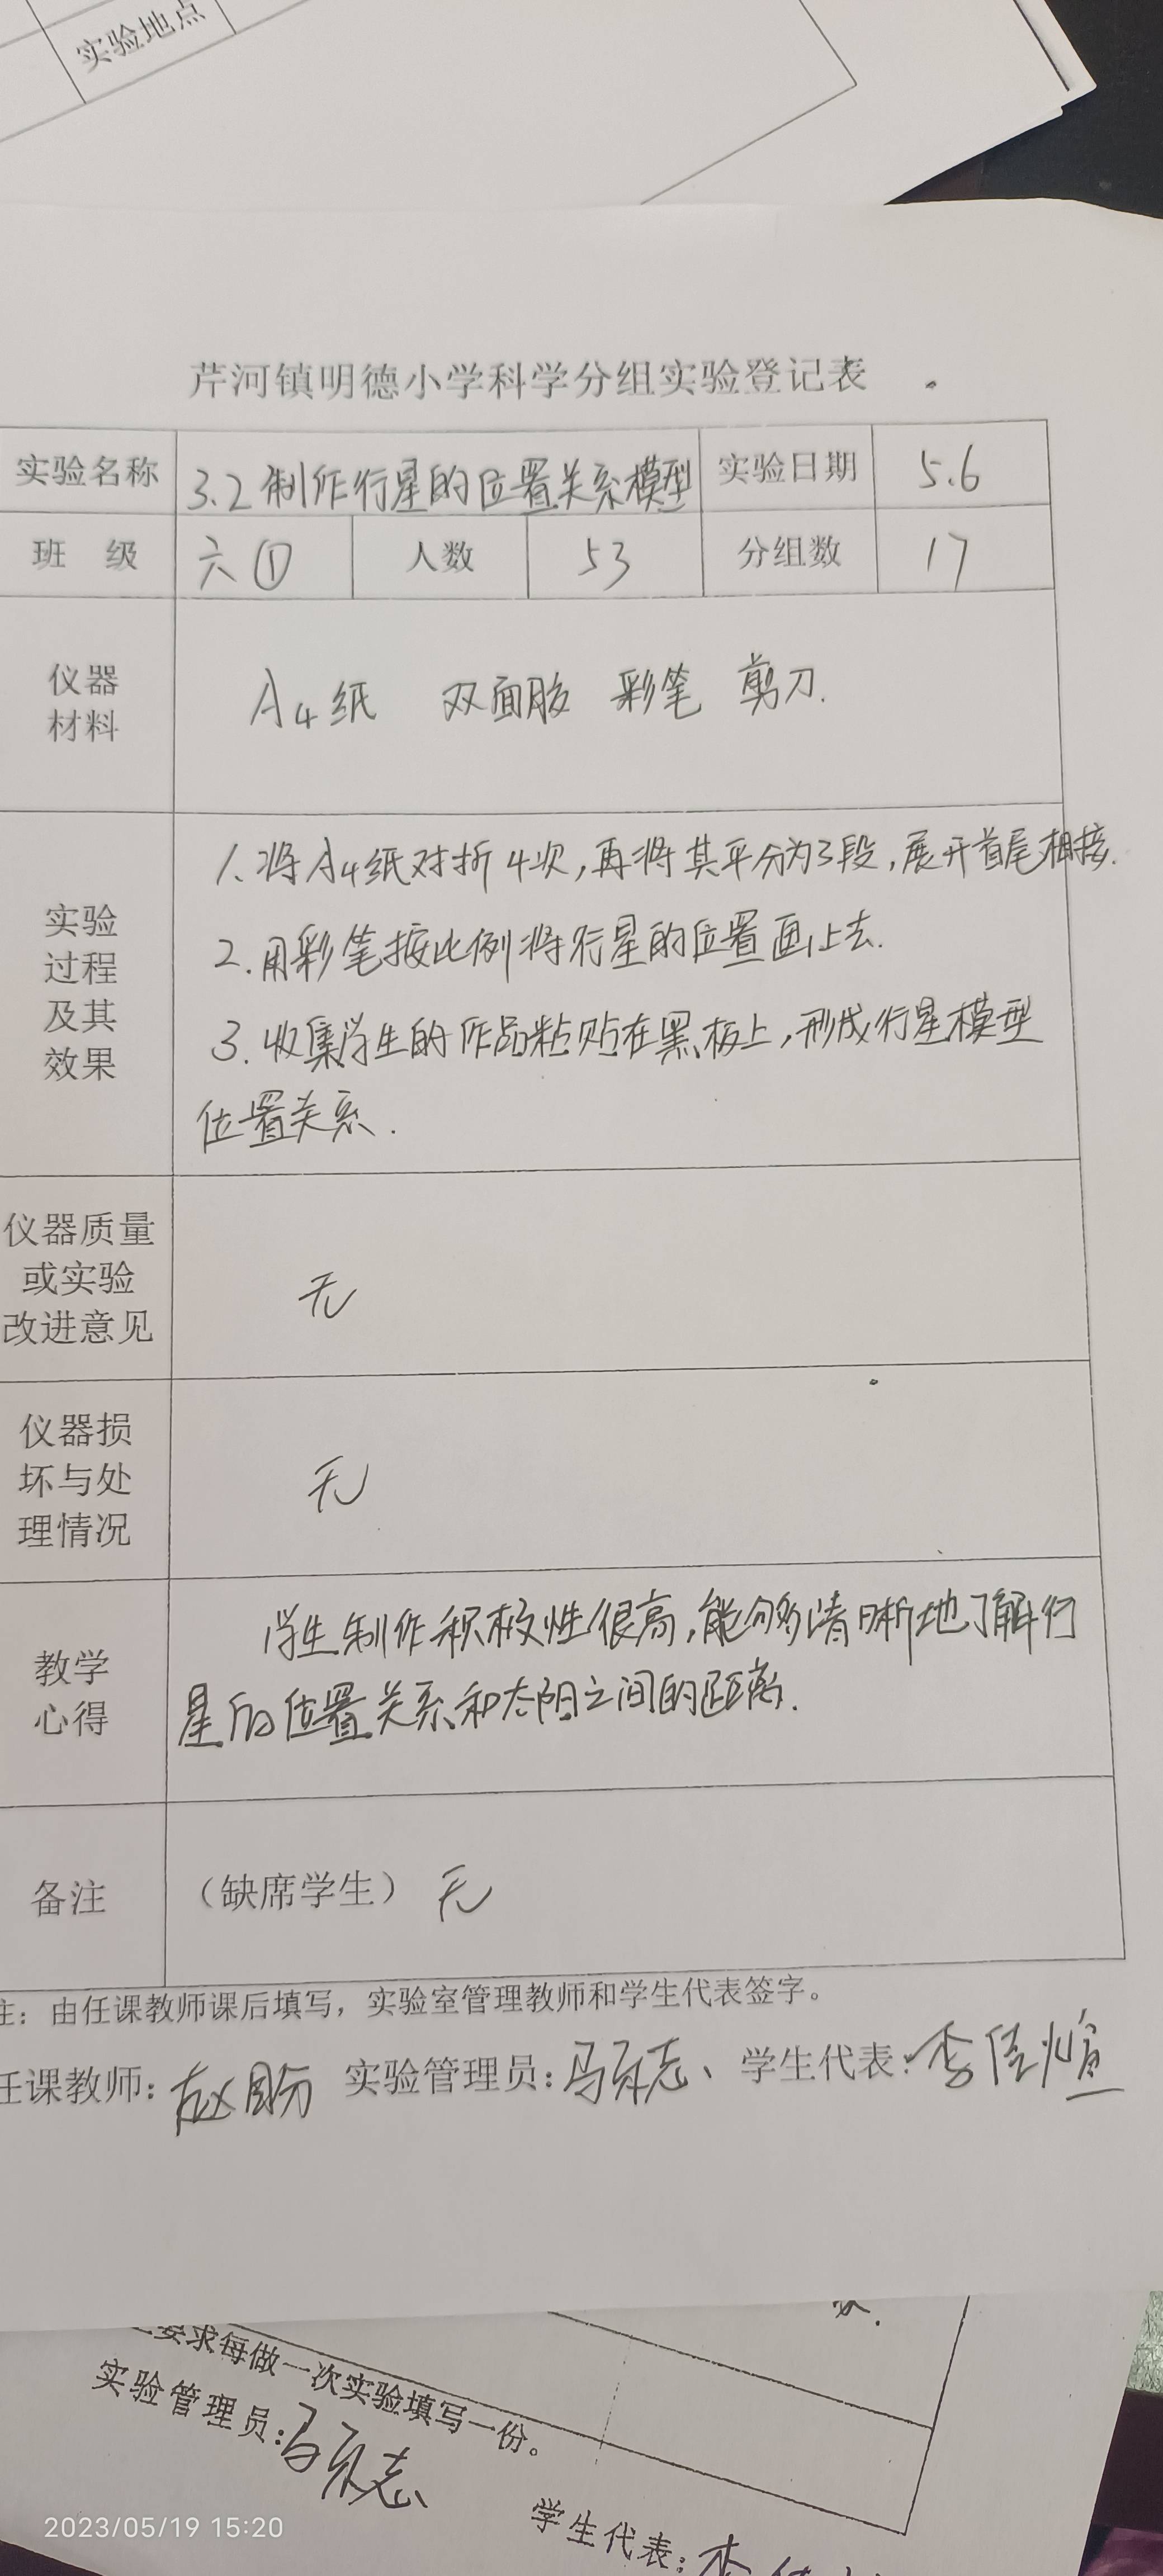 实验地点
芹河镇明德小学科学分组实验登记表
实验名称 3.2制作行星的位置关系模型 实验日期 5.6
班 级 六① 人数 53 分组数 17
仪器
材料
A4纸 双面胶 彩笔 剪刀.
实验
过程
及其
效果
1、将A4纸对折4次,再将其平分为3段,展开首尾相接.
2.用彩笔按比例将行星的位置画上去.
3.收集学生的作品粘贴在黑板上,形成行星模型
位置关系.
仪器质量
或实验
改进意见
无
仪器损
坏与处
理情况
无
教学
心得
学生制作积极性很高,能够清晰地了解行
星的位置关系和太阳之间的距离.
备注 （缺席学生） 无
注：由任课教师课后填写，实验室管理教师和学生代表签字。
任课教师: 赵 实验管理员: 马 志、 学生代表: 李佳煊
要求每做一次实验填写一份。
实验管理员: 马 志
学生代表: 李
2023/05/19 15:20